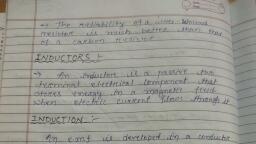 → The reliability of a wire wound
resistor is much better than that
of a carbon resistor
INDUCTORS :-
→ An inductor is a passive two
terminal electrical component that
stores energy in a magnetic field
when electric current flows through it
INDUCTION :-
An emf is developed in a conductor